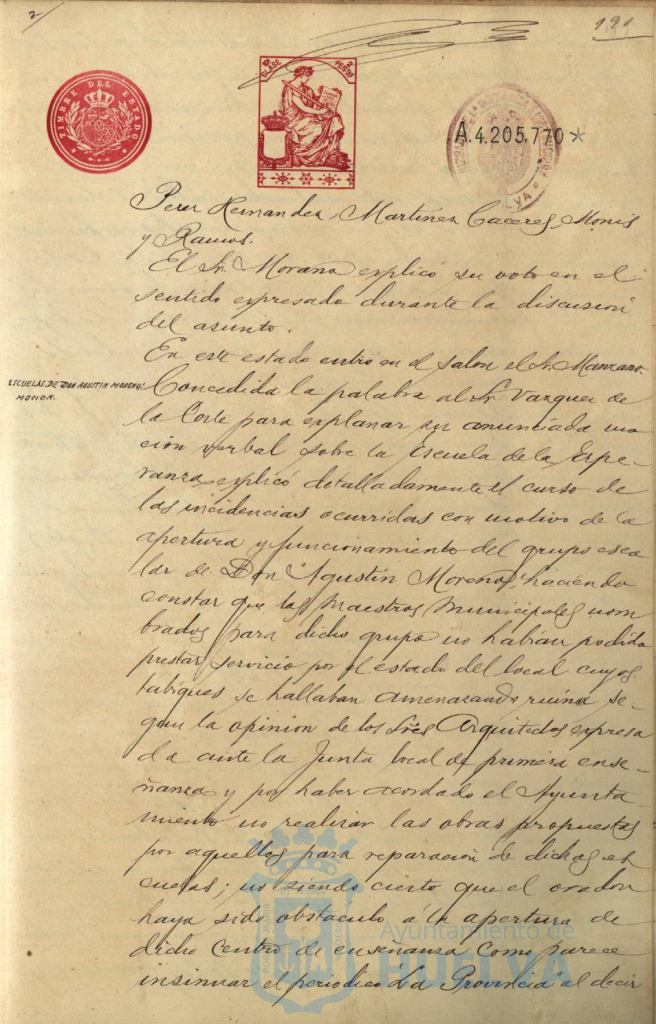 2
191
TIMBRE DEL ESTADO
CLASE
PESETAS
A.4.205,770*
Perez Hernandez, Martinez Caceres, Monis
y Ramos.
El Sr. Moraño explicó su voto en el
sentido expresado durante la discusion
del asunto.
En este estado entró en el salon el Sr. Manzano.
ESCUELAS DE DON AGUSTIN MORENO.
MOCION.
Concedida la palabra al Sr. Vazquez de
la Corte para explanar su anunciada mo
cion verbal sobre la Escuela de la Espe-
ranza explicó detalladamente el curso de
las incidencias ocurridas con motivo de la
apertura y funcionamiento del grupo esco
lar de Don "Agustin Moreno", haciendo
constar que los Maestros Municipales nom
brados para dicho grupo no habian podido
prestar servicio por el estado del local cuyos
tabiques se hallaban amenazando ruina se-
gun la opinion de los Sres Arquitectos expresa
da ante la Junta local de primera ense-
ñanza y por haber acordado el Ayunta-
miento no realizar las obras propuestas
por aquellos para reparacion de dichas es
cuelas; no siendo cierto que el orador
haya sido obstaculo á la apertura de
dicho Centro de enseñanza como parece
insinuar el periodico La Provincia al decir
Ayuntamiento de
HUELVA